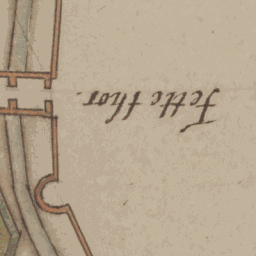 Fette thor.